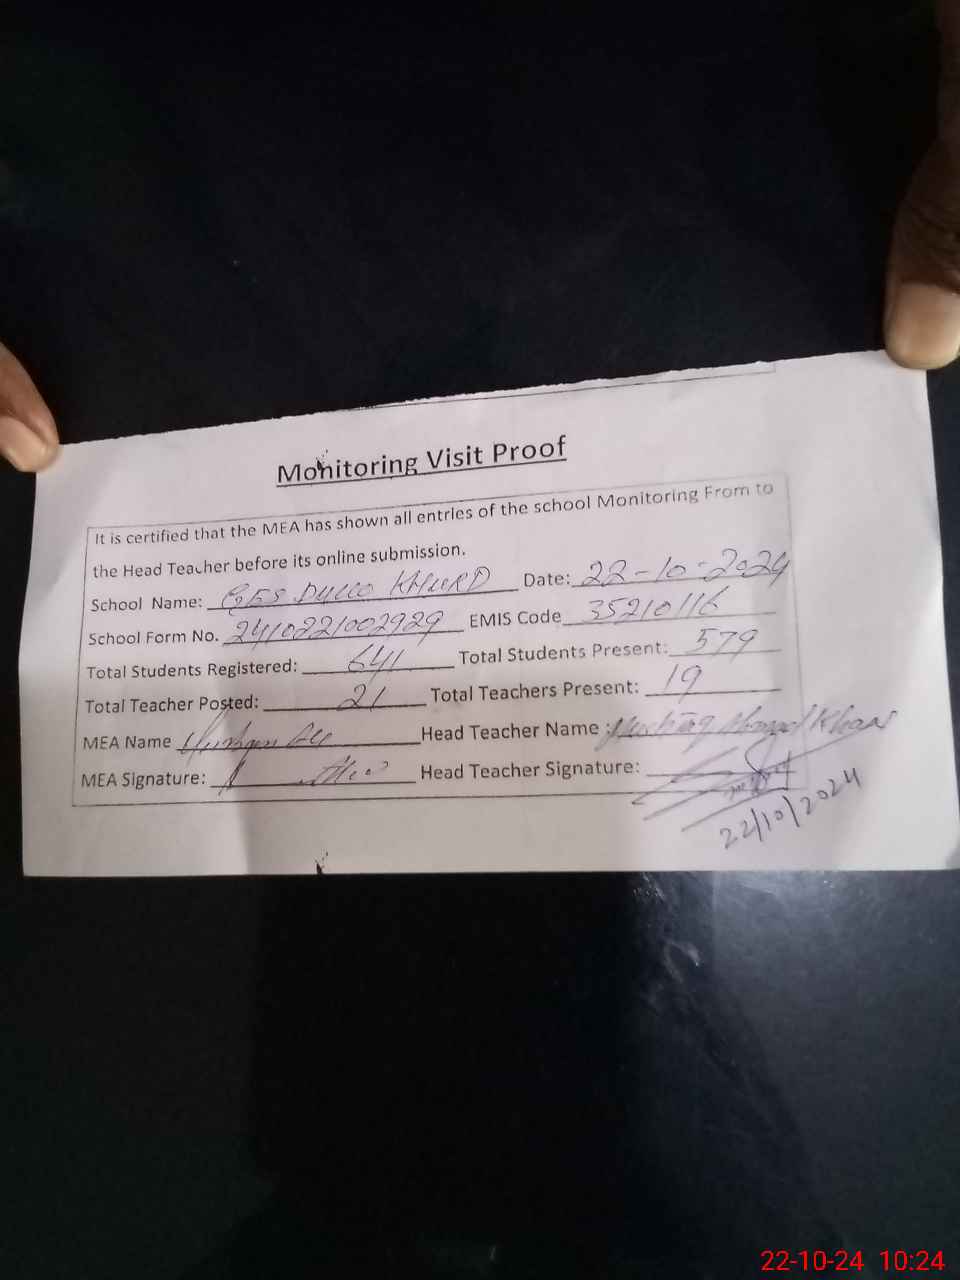 Monitoring Visit Proof
It is certified that the MEA has shown all entries of the school Monitoring From to
the Head Teacher before its online submission.
School Name: GES DULLO KHURD Date: 22-10-2024
School Form No. 2410221002929 EMIS Code 35210116
Total Students Registered: 641 Total Students Present: 579
Total Teacher Posted: 21 Total Teachers Present: 19
MEA Name Head Teacher Name : Mushtaq Ahmad Khan
MEA Signature: Head Teacher Signature:
22/10/2024
22-10-24 10:24